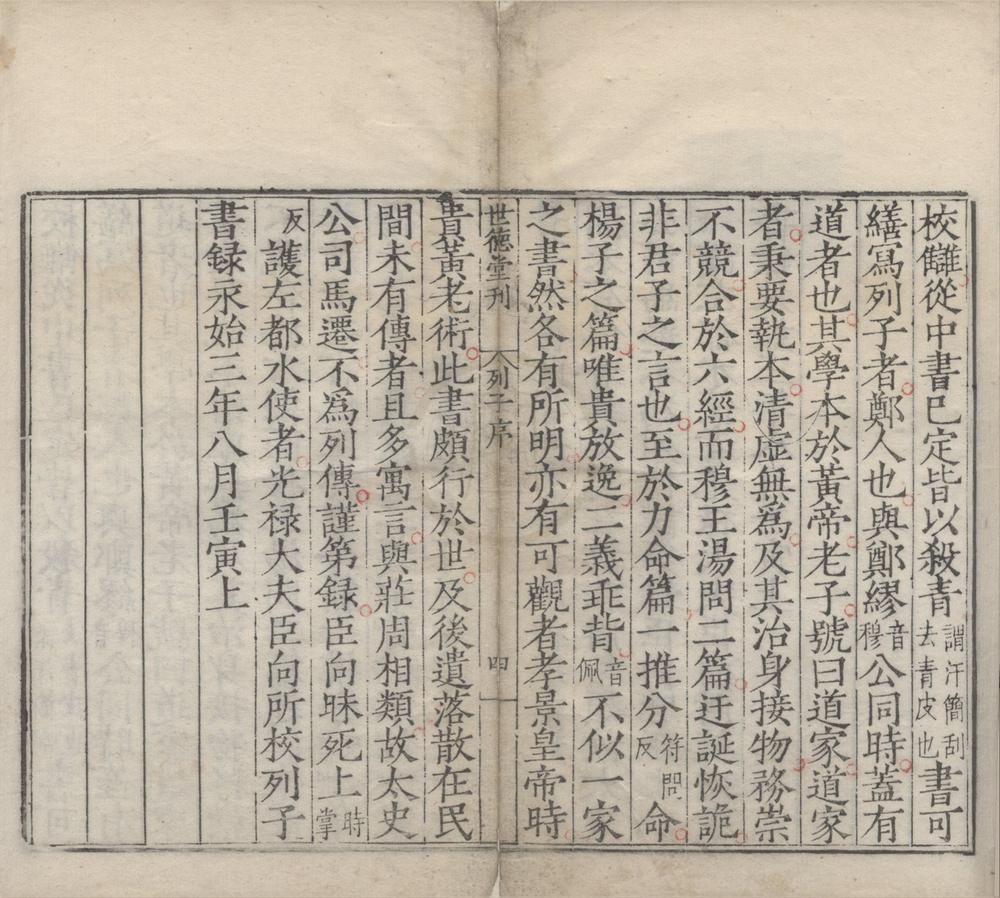 校讎從中書已定皆以殺青謂汗簡刮去青皮也書可
繕寫列子者鄭人也與鄭繆音穆公同時蓋有
道者也其學本於黃帝老子號曰道家道家
者秉要執本清虛無爲及其治身接物務崇
不競合於六經而穆王湯問二篇迂誕恢詭
非君子之言也至於力命篇一推分符問反命
楊子之篇唯貴放逸二義乖背音佩不似一家
之書然各有所明亦有可觀者孝景皇帝時
世德堂刊 列子序 四
貴黃老術此書頗行於世及後遺落散在民
間未有傳者且多寓言與莊周相類故太史
公司馬遷不爲列傳謹第録臣向昧死上時掌
反護左都水使者光禄大夫臣向所校列子
書録永始三年八月壬寅上